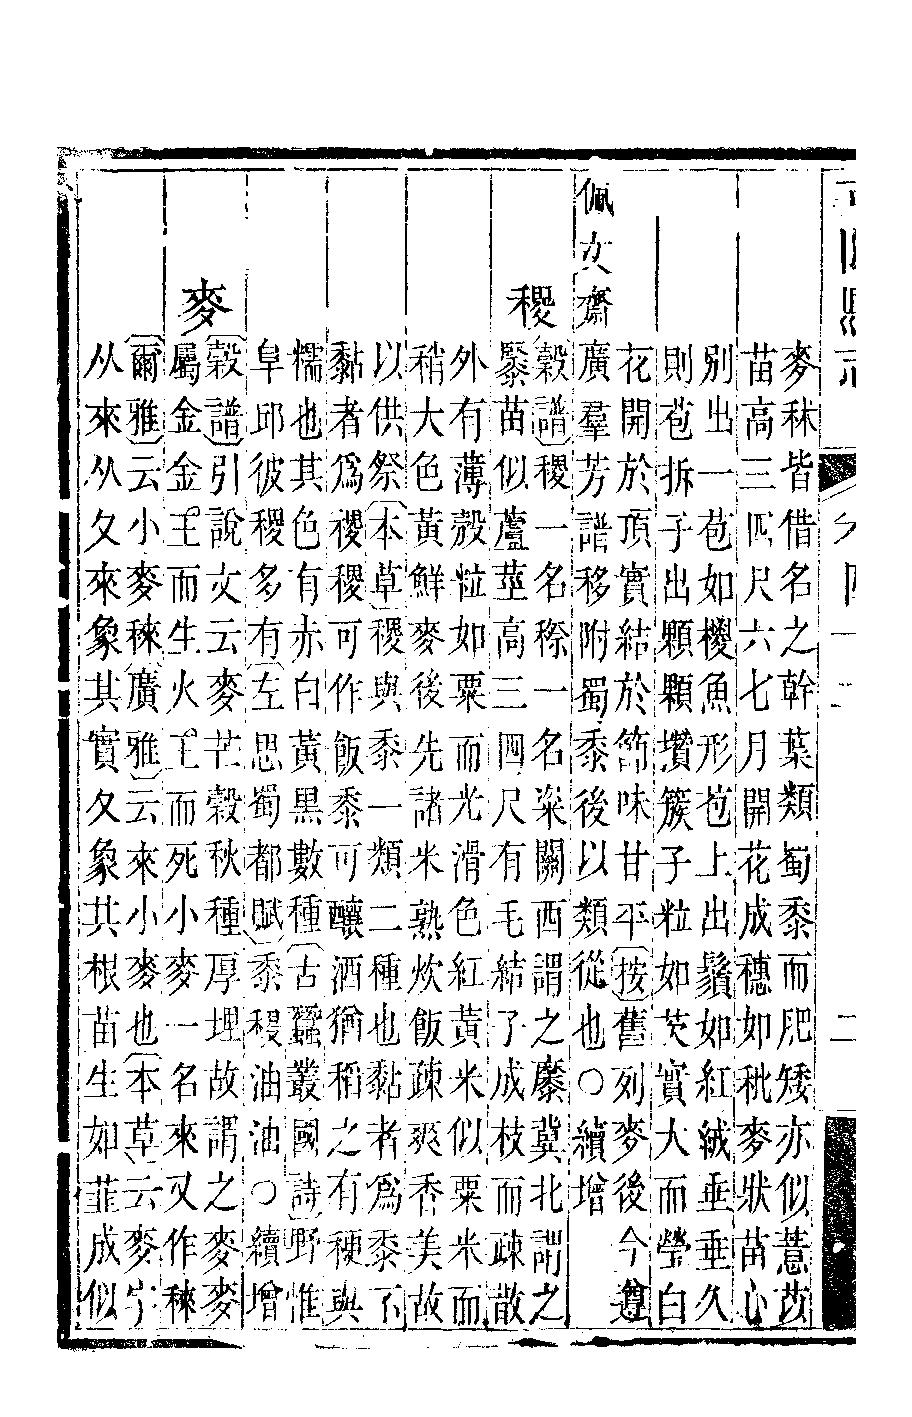 麥秫皆借名之幹葉類蜀黍而肥矮亦似薏苡
苗高三四尺六七月開花成穗如秕麥狀苗心
別出一苞如椶魚形苞上出鬚如紅絨垂垂久
則苞拆子出顆顆攢簇子粒如芡實大而瑩白
花開於頂實結於節味甘平按舊列麥後今遵
佩文齋廣羣芳譜移附蜀黍後以類從也○續增
稷
穀譜稷一名穄一名粢關西謂之穈冀北謂之
苗似蘆莖高三四尺有毛結子成枝而疎散
外有薄殼粒如粟而光滑色紅黃米似粟米而
稍大色黃鮮麥後先諸米熟炊飯疎爽香美故
以供祭本草稷與黍一類二種也黏者爲黍不
黏者爲稷稷可作飯黍可釀酒猶稻之有稉與
糯也其色有赤白黃黑數種古蠶叢國詩野惟
阜邱彼稷多有左思蜀都賦黍稷油油○續增
麥
穀譜引說文云麥芒穀秋種厚埋故謂之麥麥
屬金金王而生火王而死小麥一名來又作䅘
爾雅云小麥䅘廣雅云來小麥也本草云麥字
从來从夂來象其實夂象其根苗生如韭成似